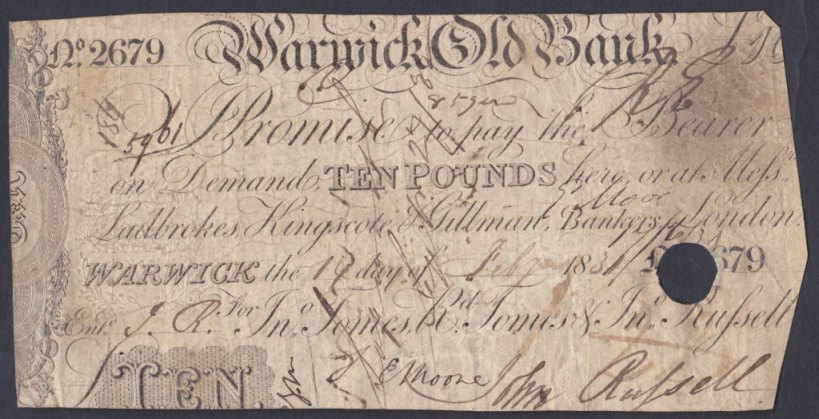 No. 2679 Warwick Old Bank £10
8592
5961 I Promise to pay the Bearer
on Demand, TEN POUNDS here, or at Messrs.
Ladbrokes, Kingscote, & Gillman, Bankers, London.
WARWICK the 17 day of Feby 1831 £ 679
Entd. J. R. For Jno. Tomes, Rd. Tomes & Jno. Russell
TEN E Moore John Russell